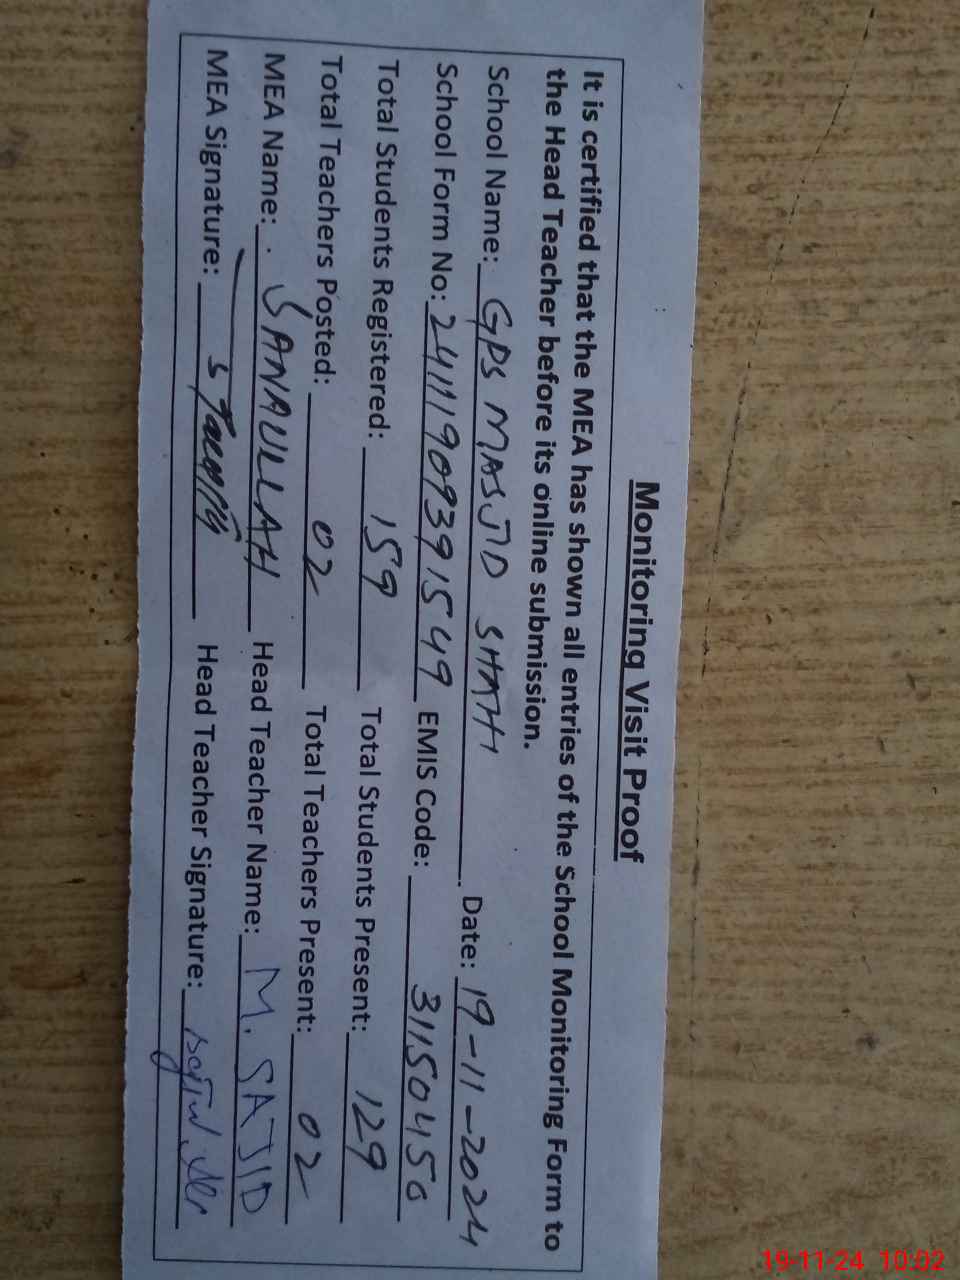 Monitoring Visit Proof
It is certified that the MEA has shown all entries of the School Monitoring Form to
the Head Teacher before its online submission.
School Name: GPS MASJID SHAH Date: 19-11-2024
School Form No: 24111909391549 EMIS Code: 31150450
Total Students Registered: 159 Total Students Present: 129
Total Teachers Posted: 02 Total Teachers Present: 02
MEA Name: SANAULLAH Head Teacher Name: M. SAJID
MEA Signature: Head Teacher Signature:
19-11-24 10:02